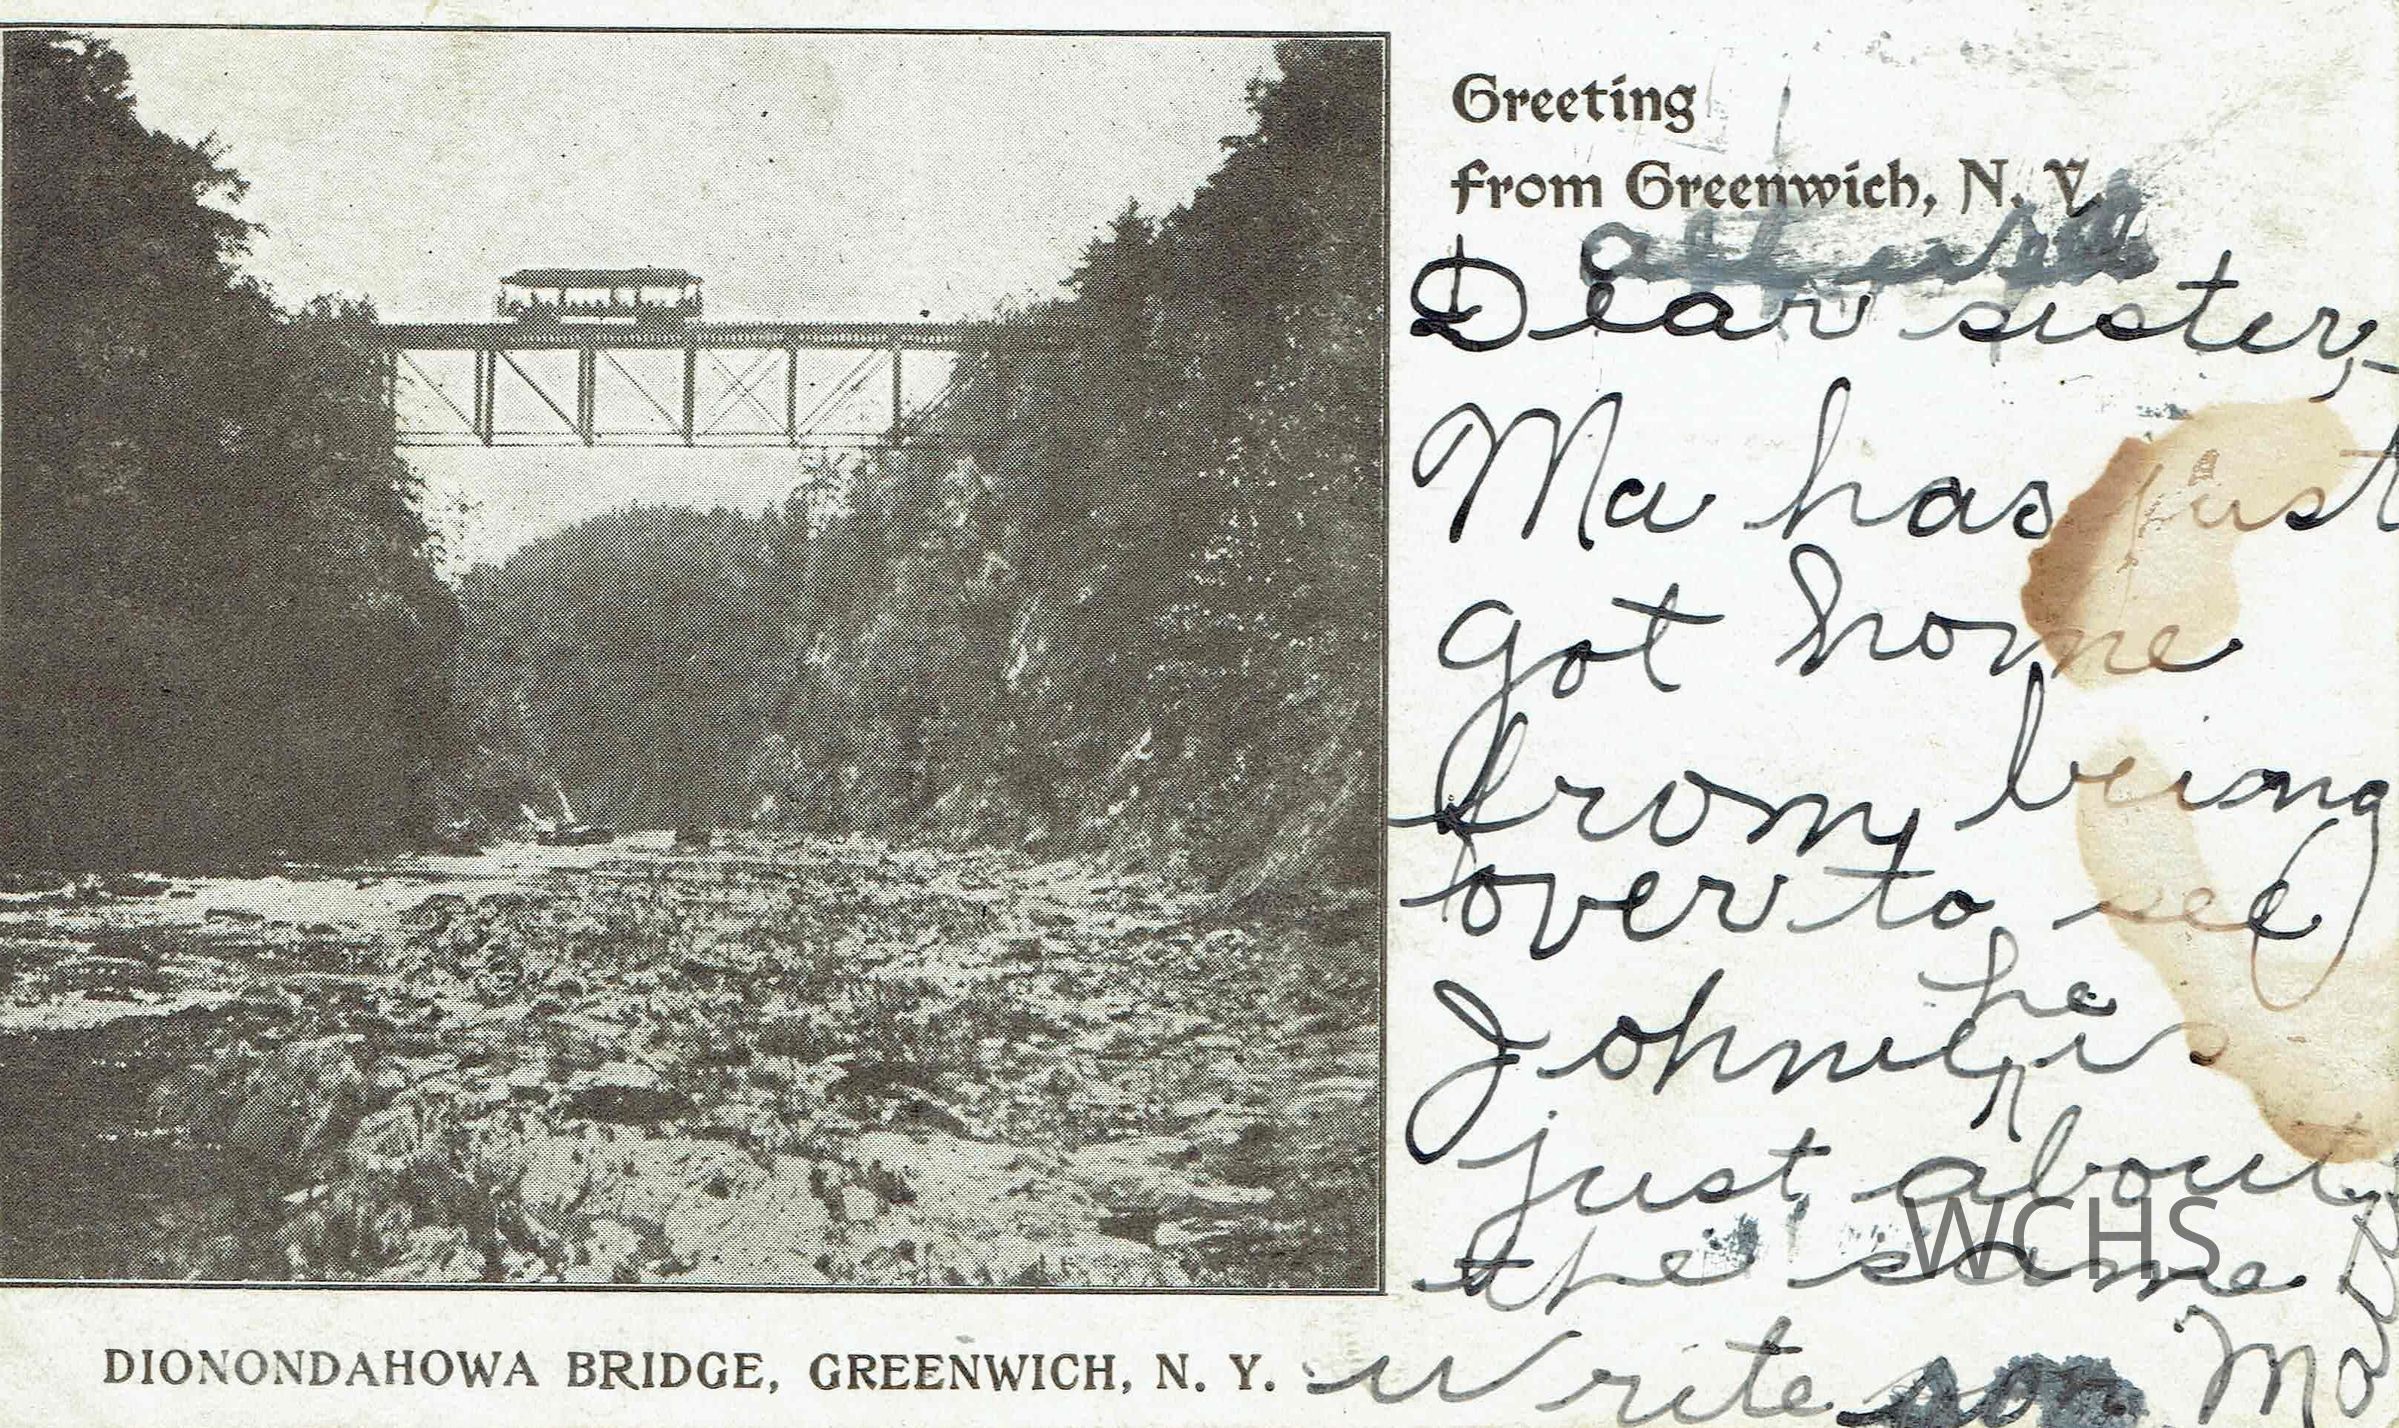 Greeting
from Greenwich, N. Y.
Dear sister,
Ma has just
got home
from being
over to see
Johnie, he is
just about
the same
Write soon
DIONONDAHOWA BRIDGE, GREENWICH, N. Y.
WCHS